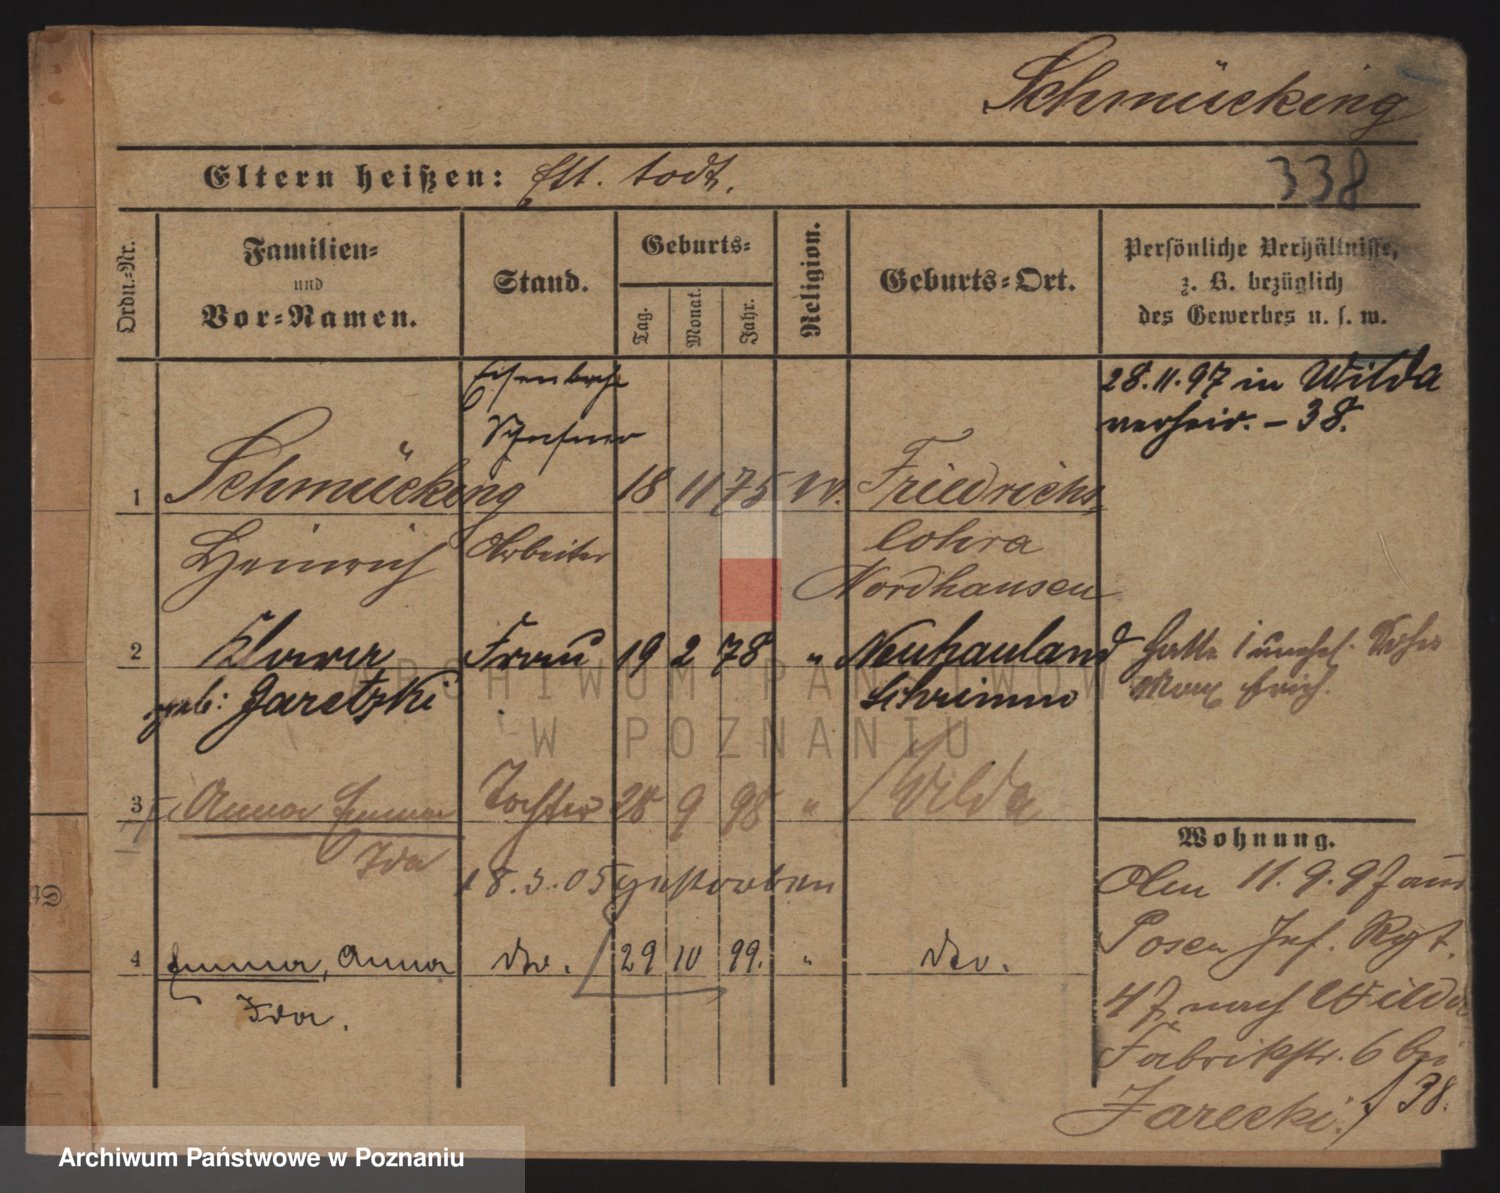 Schmücking
Eltern heißen: Elt. todt.
338
Ordn.-Nr.
Familien-
und
Vor-Namen.
Stand.
Geburts-
Tag.
Monat.
Jahr.
Religion.
Geburts-Ort.
Persönliche Verhältnisse,
z. B. bezüglich
des Gewerbes u. s. w.
28.11.97 in Wilda
verheir. - 38.
Eisenbahn
Schaffner
1 Schmücking 18 11 75 Friedrichs
Heinrich Arbeiter lohra
Nordhausen
2 Klara Frau 19 2 78 " Neuhauland Hatte 1 unehel.
geb: Garetzki Schrimm Max Erich.
3 Anna Emma Tochter 28 9 98 " Wilda
Ida
18.3.05 gestorben
4 Emma, Anna dto. 29 10 99. " dto.
Ida.
Wohnung.
Am 11.9.97 aus
Posen Inf. Rgt.
47 nach Wilda
Fabrikstr. 6 bei
Jarecki. / 38.
ARCHIWUM PAŃSTWOWE
W POZNANIU
Archiwum Państwowe w Poznaniu